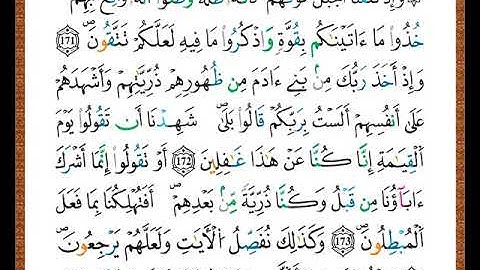 خُذُوا۟ مَآ ءَاتَيْنَٰكُم بِقُوَّةٍ وَٱذْكُرُوا۟ مَا فِيهِ لَعَلَّكُمْ تَتَّقُونَ ۝١٧١
وَإِذْ أَخَذَ رَبُّكَ مِنۢ بَنِىٓ ءَادَمَ مِن ظُهُورِهِمْ ذُرِّيَّتَهُمْ وَأَشْهَدَهُمْ
عَلَىٰٓ أَنفُسِهِمْ أَلَسْتُ بِرَبِّكُمْ قَالُوا۟ بَلَىٰ شَهِدْنَآ أَن تَقُولُوا۟ يَوْمَ
ٱلْقِيَٰمَةِ إِنَّا كُنَّا عَنْ هَٰذَا غَٰفِلِينَ ۝١٧٢ أَوْ تَقُولُوٓا۟ إِنَّمَآ أَشْرَكَ
ءَابَآؤُنَا مِن قَبْلُ وَكُنَّا ذُرِّيَّةً مِّنۢ بَعْدِهِمْ أَفَتُهْلِكُنَا بِمَا فَعَلَ
ٱلْمُبْطِلُونَ ۝١٧٣ وَكَذَٰلِكَ نُفَصِّلُ ٱلْءَايَٰتِ وَلَعَلَّهُمْ يَرْجِعُونَ